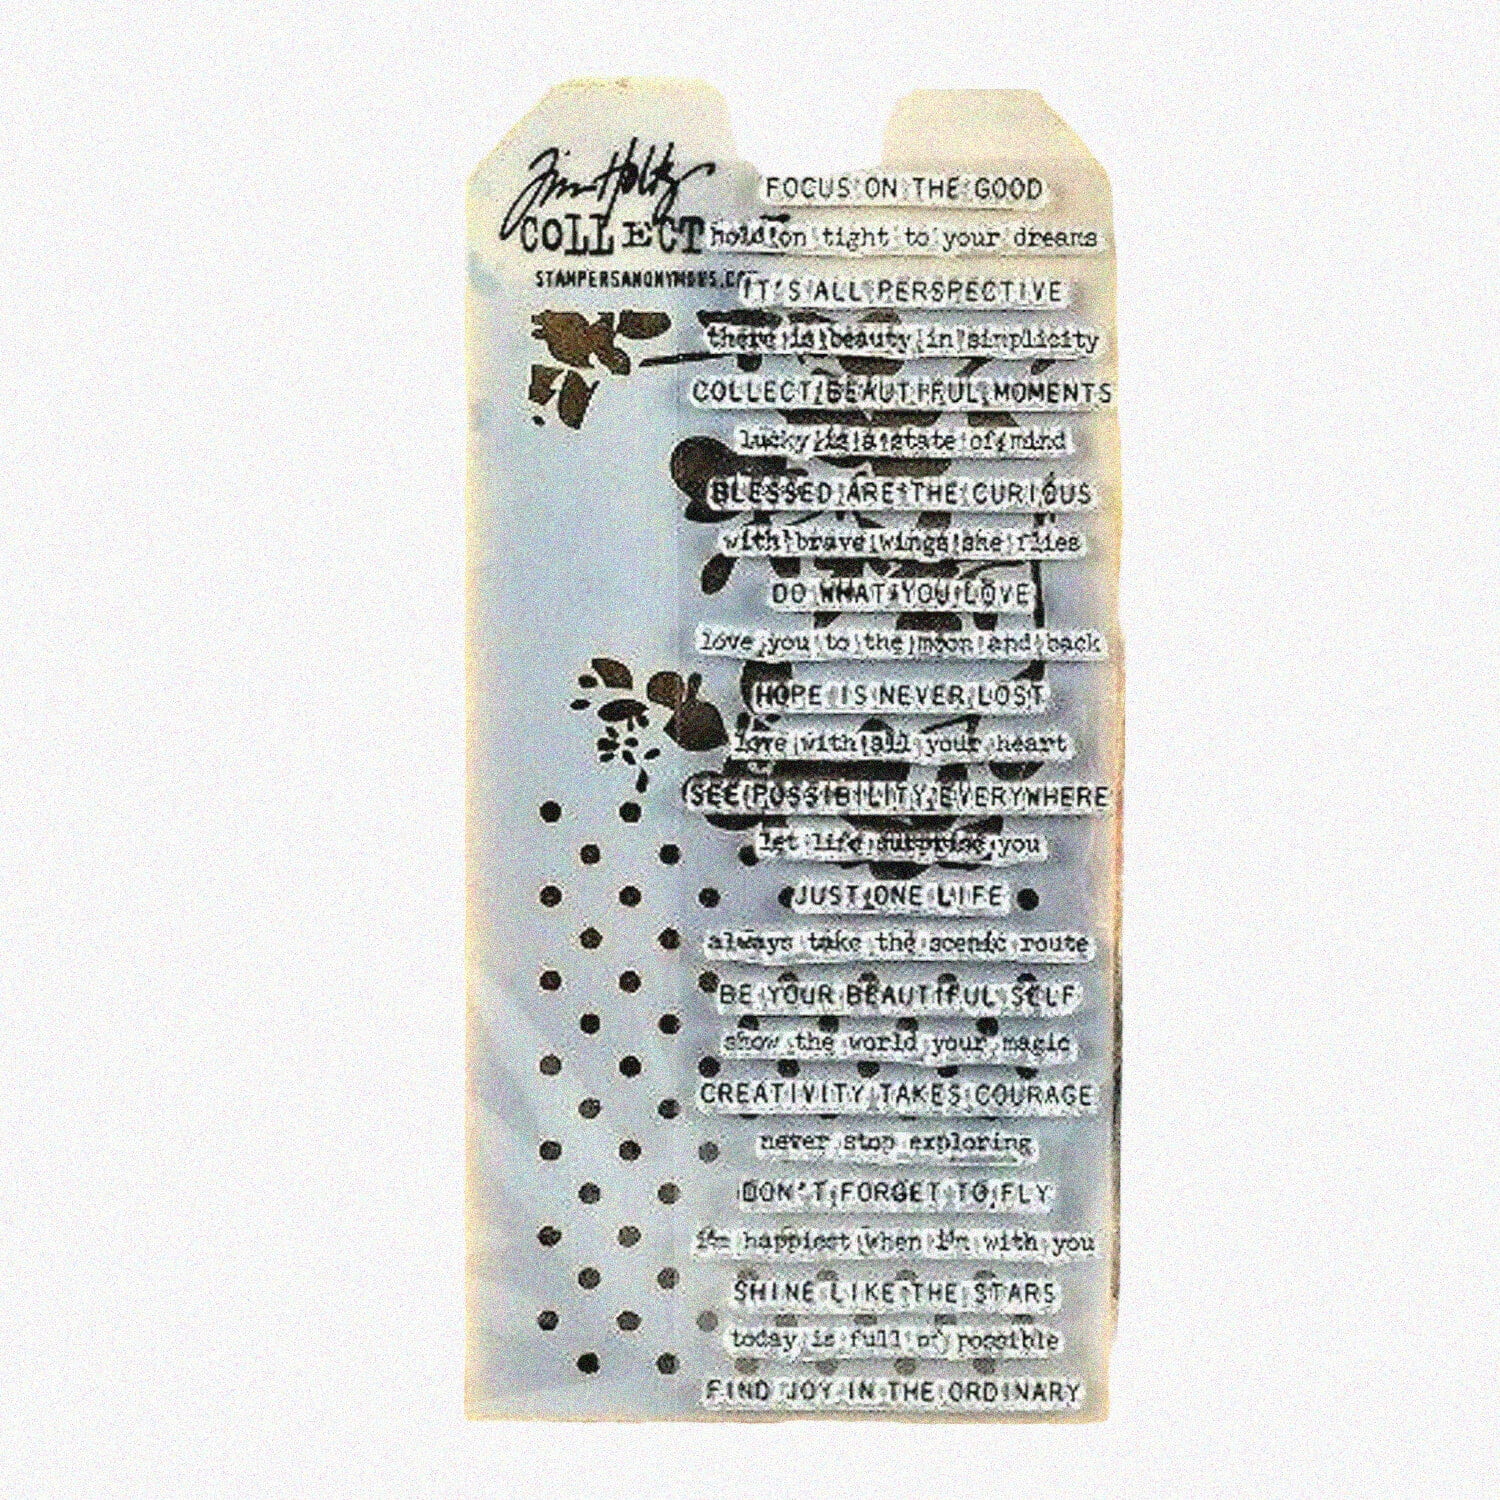 Tim Holtz
COLLECT
STAMPERSANONYMOUS.CO
FOCUS ON THE GOOD
hold on tight to your dreams
IT'S ALL PERSPECTIVE
there is beauty in simplicity
COLLECT BEAUTIFUL MOMENTS
lucky is a state of mind
BLESSED ARE THE CURIOUS
with brave wings she flies
DO WHAT YOU LOVE
love you to the moon and back
HOPE IS NEVER LOST
love with all your heart
SEE POSSIBILITY EVERYWHERE
let life surprise you
JUST ONE LIFE
always take the scenic route
BE YOUR BEAUTIFUL SELF
show the world your magic
CREATIVITY TAKES COURAGE
never stop exploring
DON'T FORGET TO FLY
i'm happiest when i'm with you
SHINE LIKE THE STARS
today is full of possible
FIND JOY IN THE ORDINARY